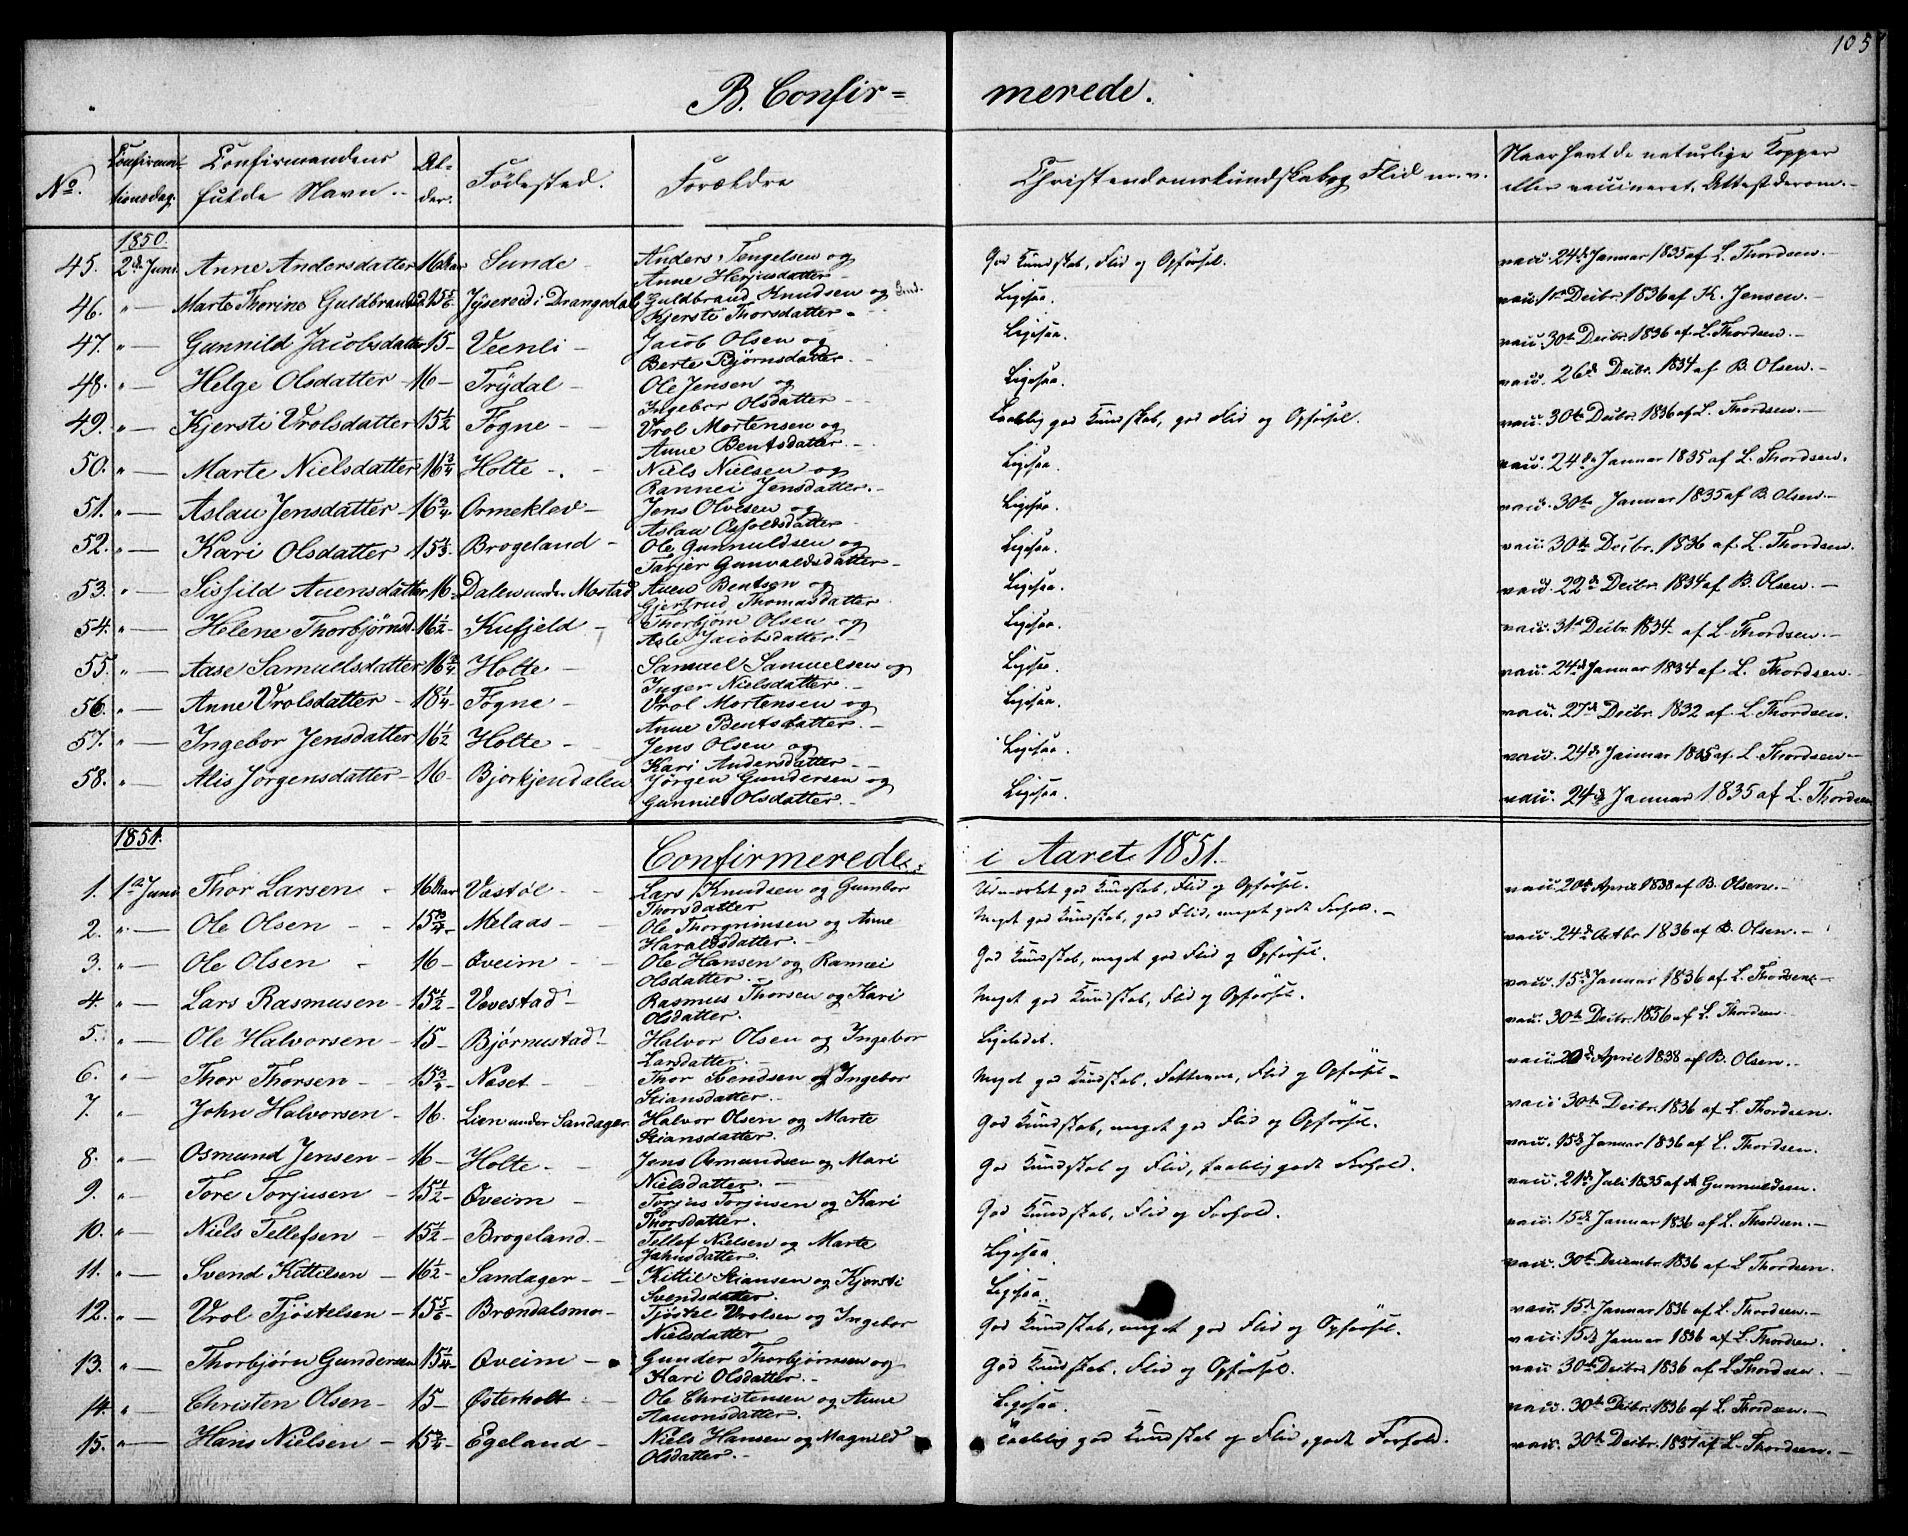 105
B. Confir= merede.
No. Confirmationsdag. Confirmandens fulde Navn. Alder. Fødested. Forældre Christendomskundskab og Flid m. v. Naar havt de naturlige Kopper eller vaccineret. Attest derom.
1850.
45. 2den Juni Anne Andersdatter 16 Aar Sunde Anders Tengelsen og Anne Herjusdatter God Kundskab, Flid og Opførsel. vacc. 24de Januar 1835 af L. Thordsen.
46. " Marte Thorine Guldbrandsd. 15 5/6 i Drangedal Guldbrand Knudsen og Kjersti Thorsdatter Ligesaa. vacc. 1ste Decbr. 1836 af K. Jensen.
47. " Gunnild Jacobsdatter 15 Veenli Jacob Olsen og Berte Bjørnsdatter Ligesaa. vacc. 30te Decbr. 1836 af L. Thordsen.
48. " Helge Olsdatter 16 Trydal Ole Jensen og Ingebor Olsdatter Ligesaa. vacc. 26de Decbr. 1834 af B. Olsen.
49. " Kjersti Vrolsdatter 15 1/2 Fogne Vrol Mortensen og Anne Bentsdatter Taalelig god Kundskab, god Flid og Opførsel. vacc. 30te Decbr. 1836 af L. Thordsen.
50. " Marte Nielsdatter 16 3/4 Holte Niels Nielsen og Rannei Jensdatter. Ligesaa. vacc. 24de Januar 1835 af L. Thordsen.
51. " Aslau Jensdatter 16 3/4 Ormeklev Jens Olvesen og Aslau Ligesaa. vacc. 30te Januar 1835 af B. Olsen.
52. " Kari Olsdatter 15 1/3 Brogeland Ole Gunnuldsen og Tarjer Gunvaldsdatter Ligesaa. vacc. 30te Decbr. 1836 af L. Thordsen.
53. " Sisfild Auensdatter 16 Dalen under Mostad Auen Bentsen og Gjertrud Thomasdatter Ligesaa. vacc. 22de Decbr. 1834 af B. Olsen.
54. " Helene Thorbjørnsd. 16 1/2 Kufjeld Thorbjørn Olsen og Asle Jacobsdatter. Ligesaa. vacc. 31te Decbr. 1834 af L. Thordsen.
55. " Aase Samuelsdatter 16 3/4 Holte Samuel Samuelsen og Inger Nielsdatter. Ligesaa. vacc. 24de Januar 1834 af L. Thordsen.
56. " Anne Vrolsdatter 18 1/4 Fogne Vrol Mortensen og Anne Bentsdatter. Ligesaa. vacc. 27de Decbr. 1832 af L. Thordsen.
57. " Ingebor Jensdatter 16 1/2 Holte Jens Olsen og Kari Andersdatter Ligesaa. vacc. 24de Januar 1835 af L. Thordsen
58. " Alis Jørgensdatter 16 Bjorkjendalen Jørgen Gundersen og Gunnil Olsdatter. Ligesaa. vacc. 24de Januar 1835 af L. Thordsen
1851. Confirmerede i Aaret 1851.
1. 1ste Juni Thor Larsen 16 Aar Vestøl Lars Knudsen og Gunbor Thorsdatter Udmærket god Kundskab, Flid og Opførsel. vacc. 20de April 1838 af B. Olsen.
2. " Ole Olsen 15 3/4 Melaas Ole Thorgrimsen og Anne Haraldsdatter. Meget god Kundskab, god Flid, meget godt Forhold. vacc. 24de Octbr. 1836 af B. Olsen.
3. " Ole Olsen 16 Øveim Ole Hansen og Rannei Olsdatter. God Kundskab, meget god Flid og Opførsel. vacc. 15de Januar 1836 af L. Thordsen.
4. " Lars Rasmusen 15 1/2 Vevestad Rasmus Thorsen og Kari Olsdatter. Meget god Kundskab, Flid og Opførsel. vacc. 30te Decbr. 1836 af L. Thordsen.
5. " Ole Halvorsen 15 Bjørnustad Halvor Olsen og Ingebor Larsdatter. Ligeledes. vacc. 20de April 1838 af B. Olsen.
6. " Thor Thorsen 15 3/4 Næset Thor Svendsen og Ingebor Stiansdatter. Meget god Kundskab, Fatteevne, Flid og Opførsel. vacc. 30te Decbr. 1836 af L. Thordsen.
7. " John Halvorsen 16. Lien under Sandager Halvor Olsen og Marte Stiansdatter. God Kundskab, meget god Flid og Opførsel. vacc. 15de Januar 1836 af L. Thordsen.
8. " Osmund Jensen 16 Holte Jens Osmundsen og Mari Nielsdatter. God Kundskab og Flid, taalelig godt Forhold. vacc. 21de Juli 1835 af A Gunnuldsen.
9. " Tore Torjusen 15 1/2 Øveim Torjus Torjusen og Kari Thorsdatter. God Kundskab, Flid og Forhold. vacc. 15de Januar 1836 af L. Thordsen.
10. " Niels Tellefsen 15 1/2 Brogeland Tellef Nielsen og Marte Jahnsdatter Ligesaa vacc. 30te Decembr. 1836 af L Thordsen.
11. " Svend Kittilsen 16 1/2 Sandager Kittil Stiansen og Kjersti Svendsdatter. Ligesaa. vacc. 15de Januar 1836 af L. Thordsen.
12. " Vrol Tjøstelsen 15 5/6 Brændalsmo Tjøstel Vrolsen og Ingebor Nielsdatter God Kundskab, meget god Flid og Opførsel. vacc. 15de Januar 1836 af L. Thordsen.
13. " Thorbjørn Gundersen 15 1/4 Øveim Gunder Thorbjørnsen og Kari Olsdatter. God Kundskab, Flid og Opførsel. vacc. 30te Decbr. 1836 af L. Thordsen.
14. " Christen Olsen 15 Østerholt Ole Christensen og Anne Aanonsdatter. Ligesaa. vacc. 30te Decbr. 1836 af L. Thordsen.
15. " Hans Nielsen 15 3/4 Egeland Niels Hansen og Magnild Olsdatter. Taalelig god Kundskab og Flid, godt Forhold. vacc. 30te Decbr. 1837 af L. Thordsen.